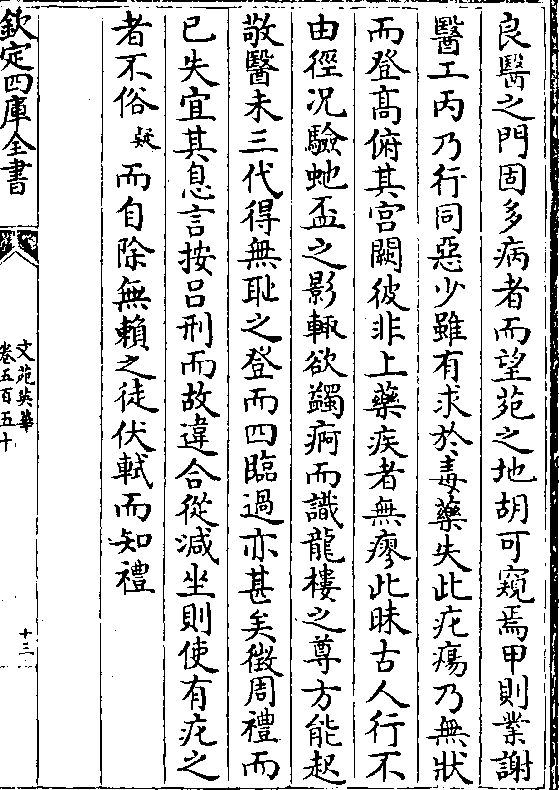 良醫之門固多病者而望苑之地胡可窺焉甲則業謝
醫工丙乃行同惡少雖有求於毒藥失此疕瘍乃無狀
而登髙俯其宮闕彼非上藥疾者無瘳此昧古人行不
由徑况驗虵盃之影輙欲蠲痾而識龍樓之尊方能起
敬醫未三代得無耻之登而四臨過亦甚矣徵周禮而
已失宜其息言按吕刑而故違合從減坐則使有疕之
者不俗疑而自除無賴之徒伏軾而知禮
欽定四庫全書
文苑英華
卷五百五十
十三